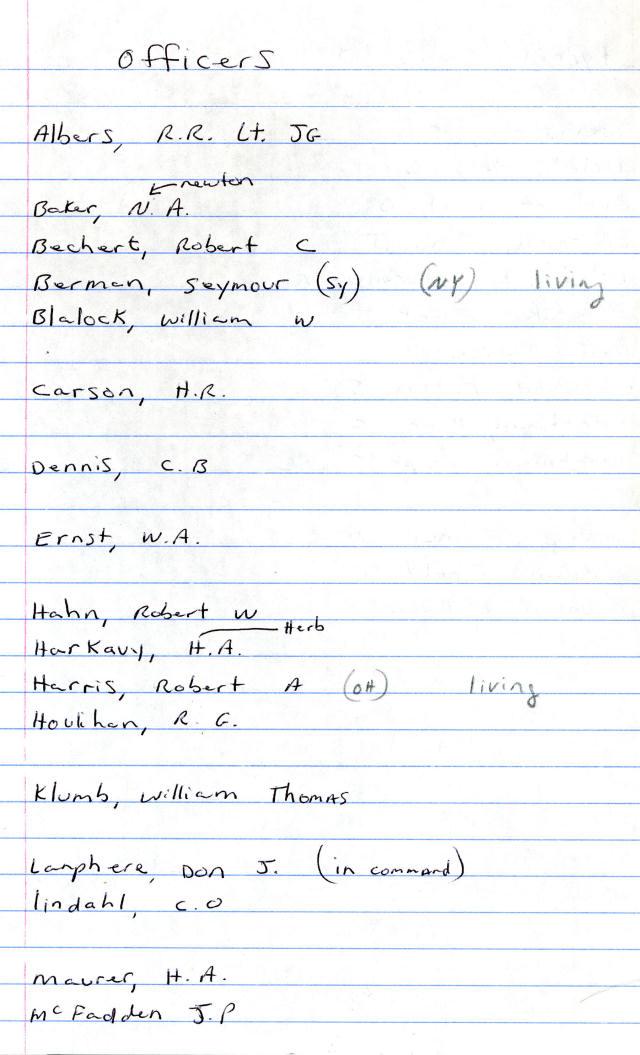 Officers
Albers, R.R. Lt. JG
newton
Baker, N.A.
Bechert, Robert C
Berman, Seymour (Sy) (NY) living
Blalock, William W
Carson, H.R.
Dennis, C.B
Ernst, W.A.
Hahn, Robert W
Herb
Harkavy, H.A.
Harris, Robert A (OH) living
Houlihan, R.G.
Klumb, William Thomas
Lanphere, Don J. (in command)
lindahl, C.O
Maurer, H.A.
McFadden J.P